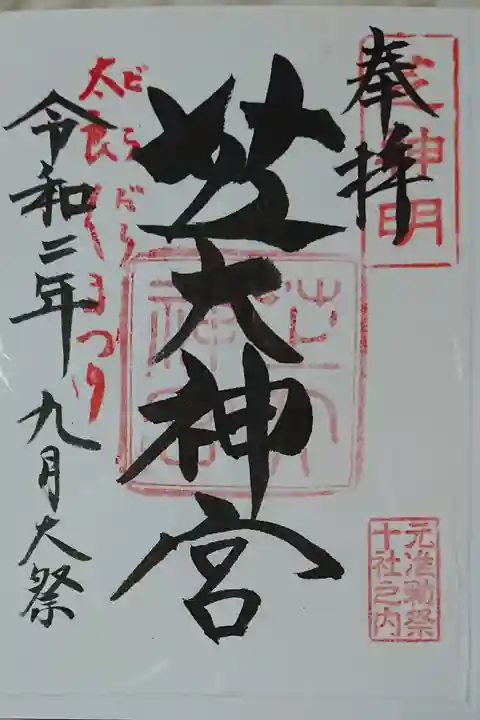 奉拝
芝神明
芝大神宮
芝大神宮
だらだらまつり
令和二年九月大祭
元准勅祭
十社之内